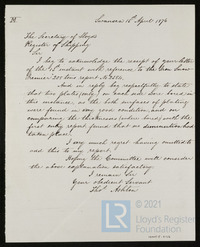 Swansea 15th April 1874
The Secretary of Lloyds
Register of Shipping
Sir
I beg to acknowledge the receipt of your letter
of the 13th instant with reference to the
report No
And in reply beg respectfully to state
that two plates only on each side were bored, in
this instance, as the both surfaces of plating
were found in very good condition, and on
comparing the thicknesses when bored with the
first entry report found that no diminution had
taken place.
I very much regret having omitted to
add this to my report.
Hoping the Committee will consider
the above explanation satisfactory
I remain Sir
Your obedient Servant
Thos Ashton
© 2021
Lloyd's Register
Foundation